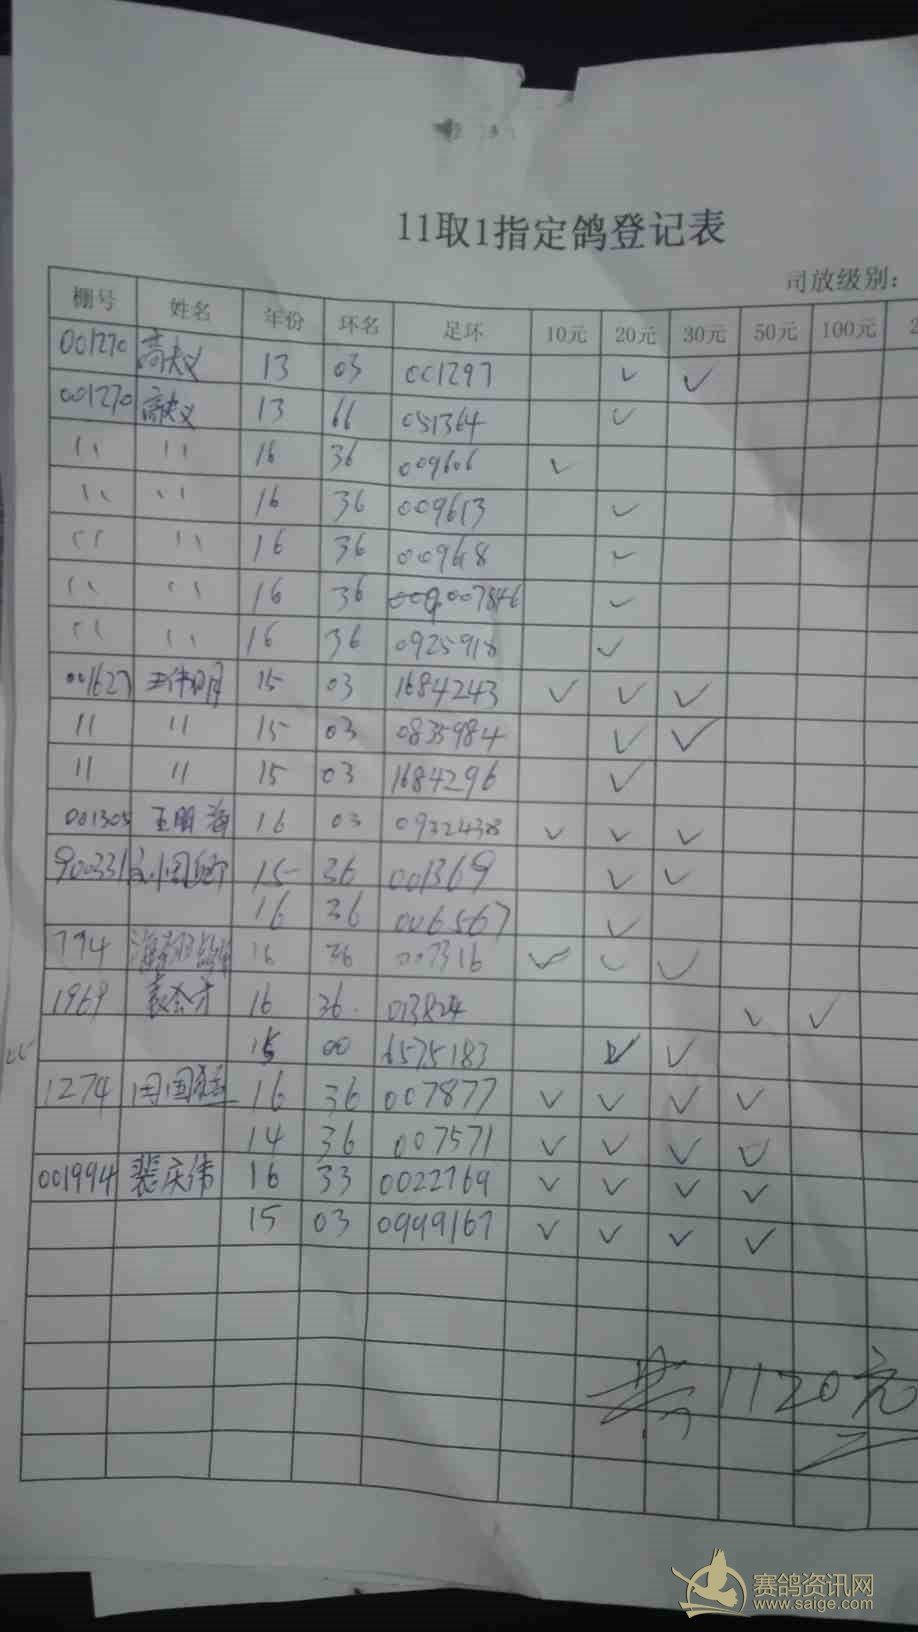 11取1指定鸽登记表
司放级别：
棚号 姓名 年份 环名 足环 10元 20元 30元 50元 100元 2
001270 高夫义 13 03 001297 ✓ ✓
001270 高夫义 13 66 051364 ✓
〃 〃 16 36 009606 ✓
〃 〃 16 36 009613 ✓
〃 〃 16 36 009618 ✓
〃 〃 16 36 007846 ✓
〃 〃 16 36 0925918 ✓
001627 王伟明 15 03 1684243 ✓ ✓ ✓
〃 〃 15 03 0835984 ✓ ✓
〃 〃 15 03 1684296 ✓
001305 王明海 16 03 ✓ ✓ ✓
15 36 001369 ✓ ✓
16 36 006567 ✓
794 16 36 007316 ✓ ✓ ✓
1969 袁公才 16 36. 013824 ✓ ✓
15 00 6575183 ✓ ✓
1274 田国 16 36 007877 ✓ ✓ ✓ ✓
14 36 007571 ✓ ✓ ✓ ✓
001994 裴庆伟 16 33 0022769 ✓ ✓ ✓ ✓
15 03 0999167 ✓ ✓ ✓ ✓
共 1120元
赛鸽资讯网
www.saige.com